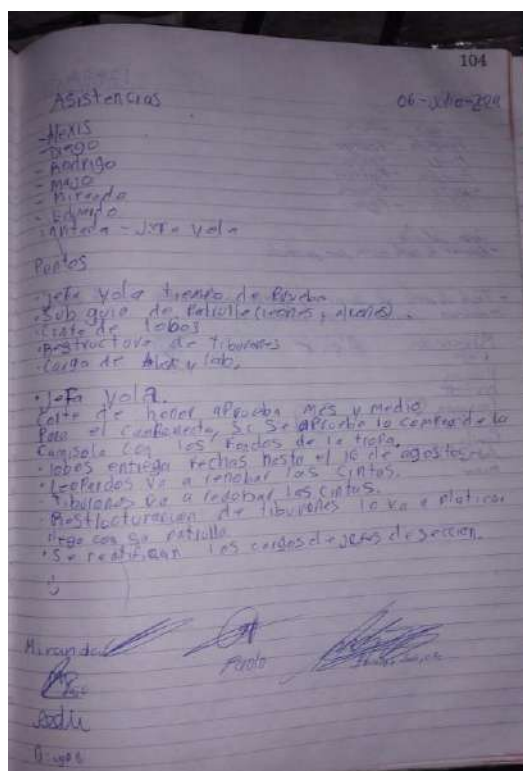 104
Asistencias
06-Julio-
-Alexis
-Diego
- Rodrigo
- Majo
- Miranda
- Jefa Yola
Puntos
·Jefa Yola tiempo de Prueba
·Sub guia de Patrulla (leones y
·Cinta de lobos
·Restructura de Tiburones
·Cargo de
·Jefa Yola.
Corte de honor aprueba mes y medio
Para el Si Se aprueba la compra de la
Camisola Con los Fondos de la tropa.
·lobos entrega Fechas hasta el 16 de agosto
·Leopardos va a renobar las Cintas.
Tiburones va a renobar las Cintas.
Restructuracion de tiburones lo va a platicar
con su patrulla.
·Se reatifican los cargos de Jefes de Seccion.
Miranda
Paola